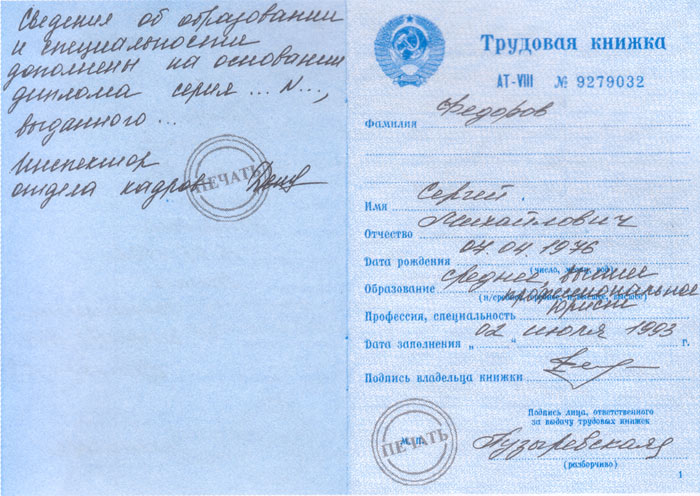 Сведения об образовании
и специальности
дополнены на основании
диплома серия ... N...,
выданного ...
Инспектор
отдела кадров
ПЕЧАТЬ
Трудовая книжка
АТ-VIII № 9279032
Фамилия Федоров
Имя Сергей
Отчество Михайлович
Дата рождения 07.04.1976
(число, месяц, год)
Образование среднее, высшее
профессиональное
Профессия, специальность юрист
Дата заполнения „02“ июля 1993 г.
Подпись владельца книжки
Подпись лица, ответственного
за выдачу трудовых книжек
М.П.
ПЕЧАТЬ
Пузыревская
(разборчиво)
1